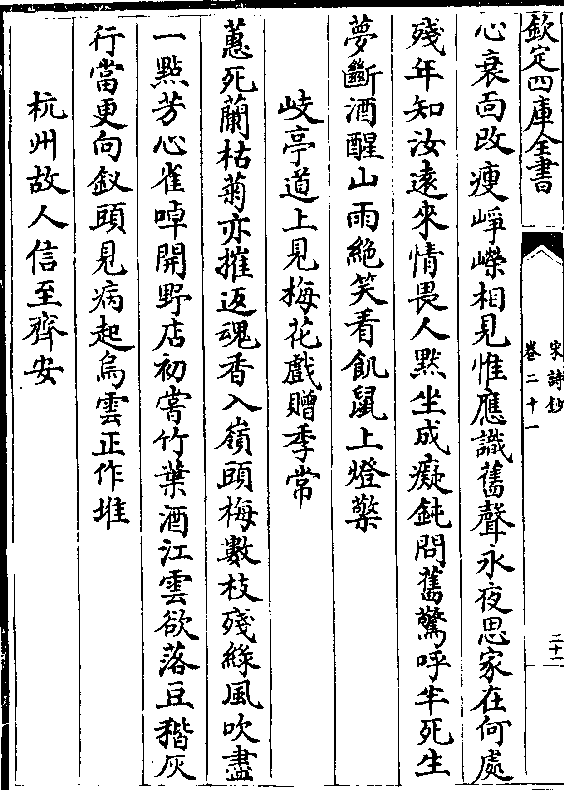 欽定四庫全書
宋詩鈔
卷二十一
二十一
心衰面改瘦崢嶸相見惟應識舊聲永夜思家在何處
殘年知汝遠來情畏人黙坐成癡鈍問舊驚呼半死生
夢斷酒醒山雨絶笑看飢鼠上燈檠
岐亭道上見梅花戲贈季常
蕙死蘭枯菊亦摧返魂香入嶺頭梅數枝殘緑風吹盡
一點芳心雀啅開野店初嘗竹葉酒江雲欲落豆稭灰
行當更向釵頭見病起烏雲正作堆
杭州故人信至齊安